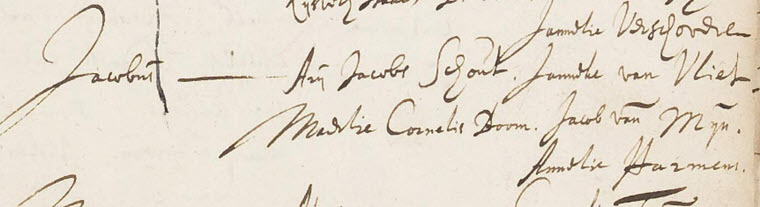 Jannetie Verschoore
Jacobus — Arij Jacobs Schout. Janneke van Vliet.
Maertie Cornelis Boom. Jacob van Mijn.
Annetie Harmens.